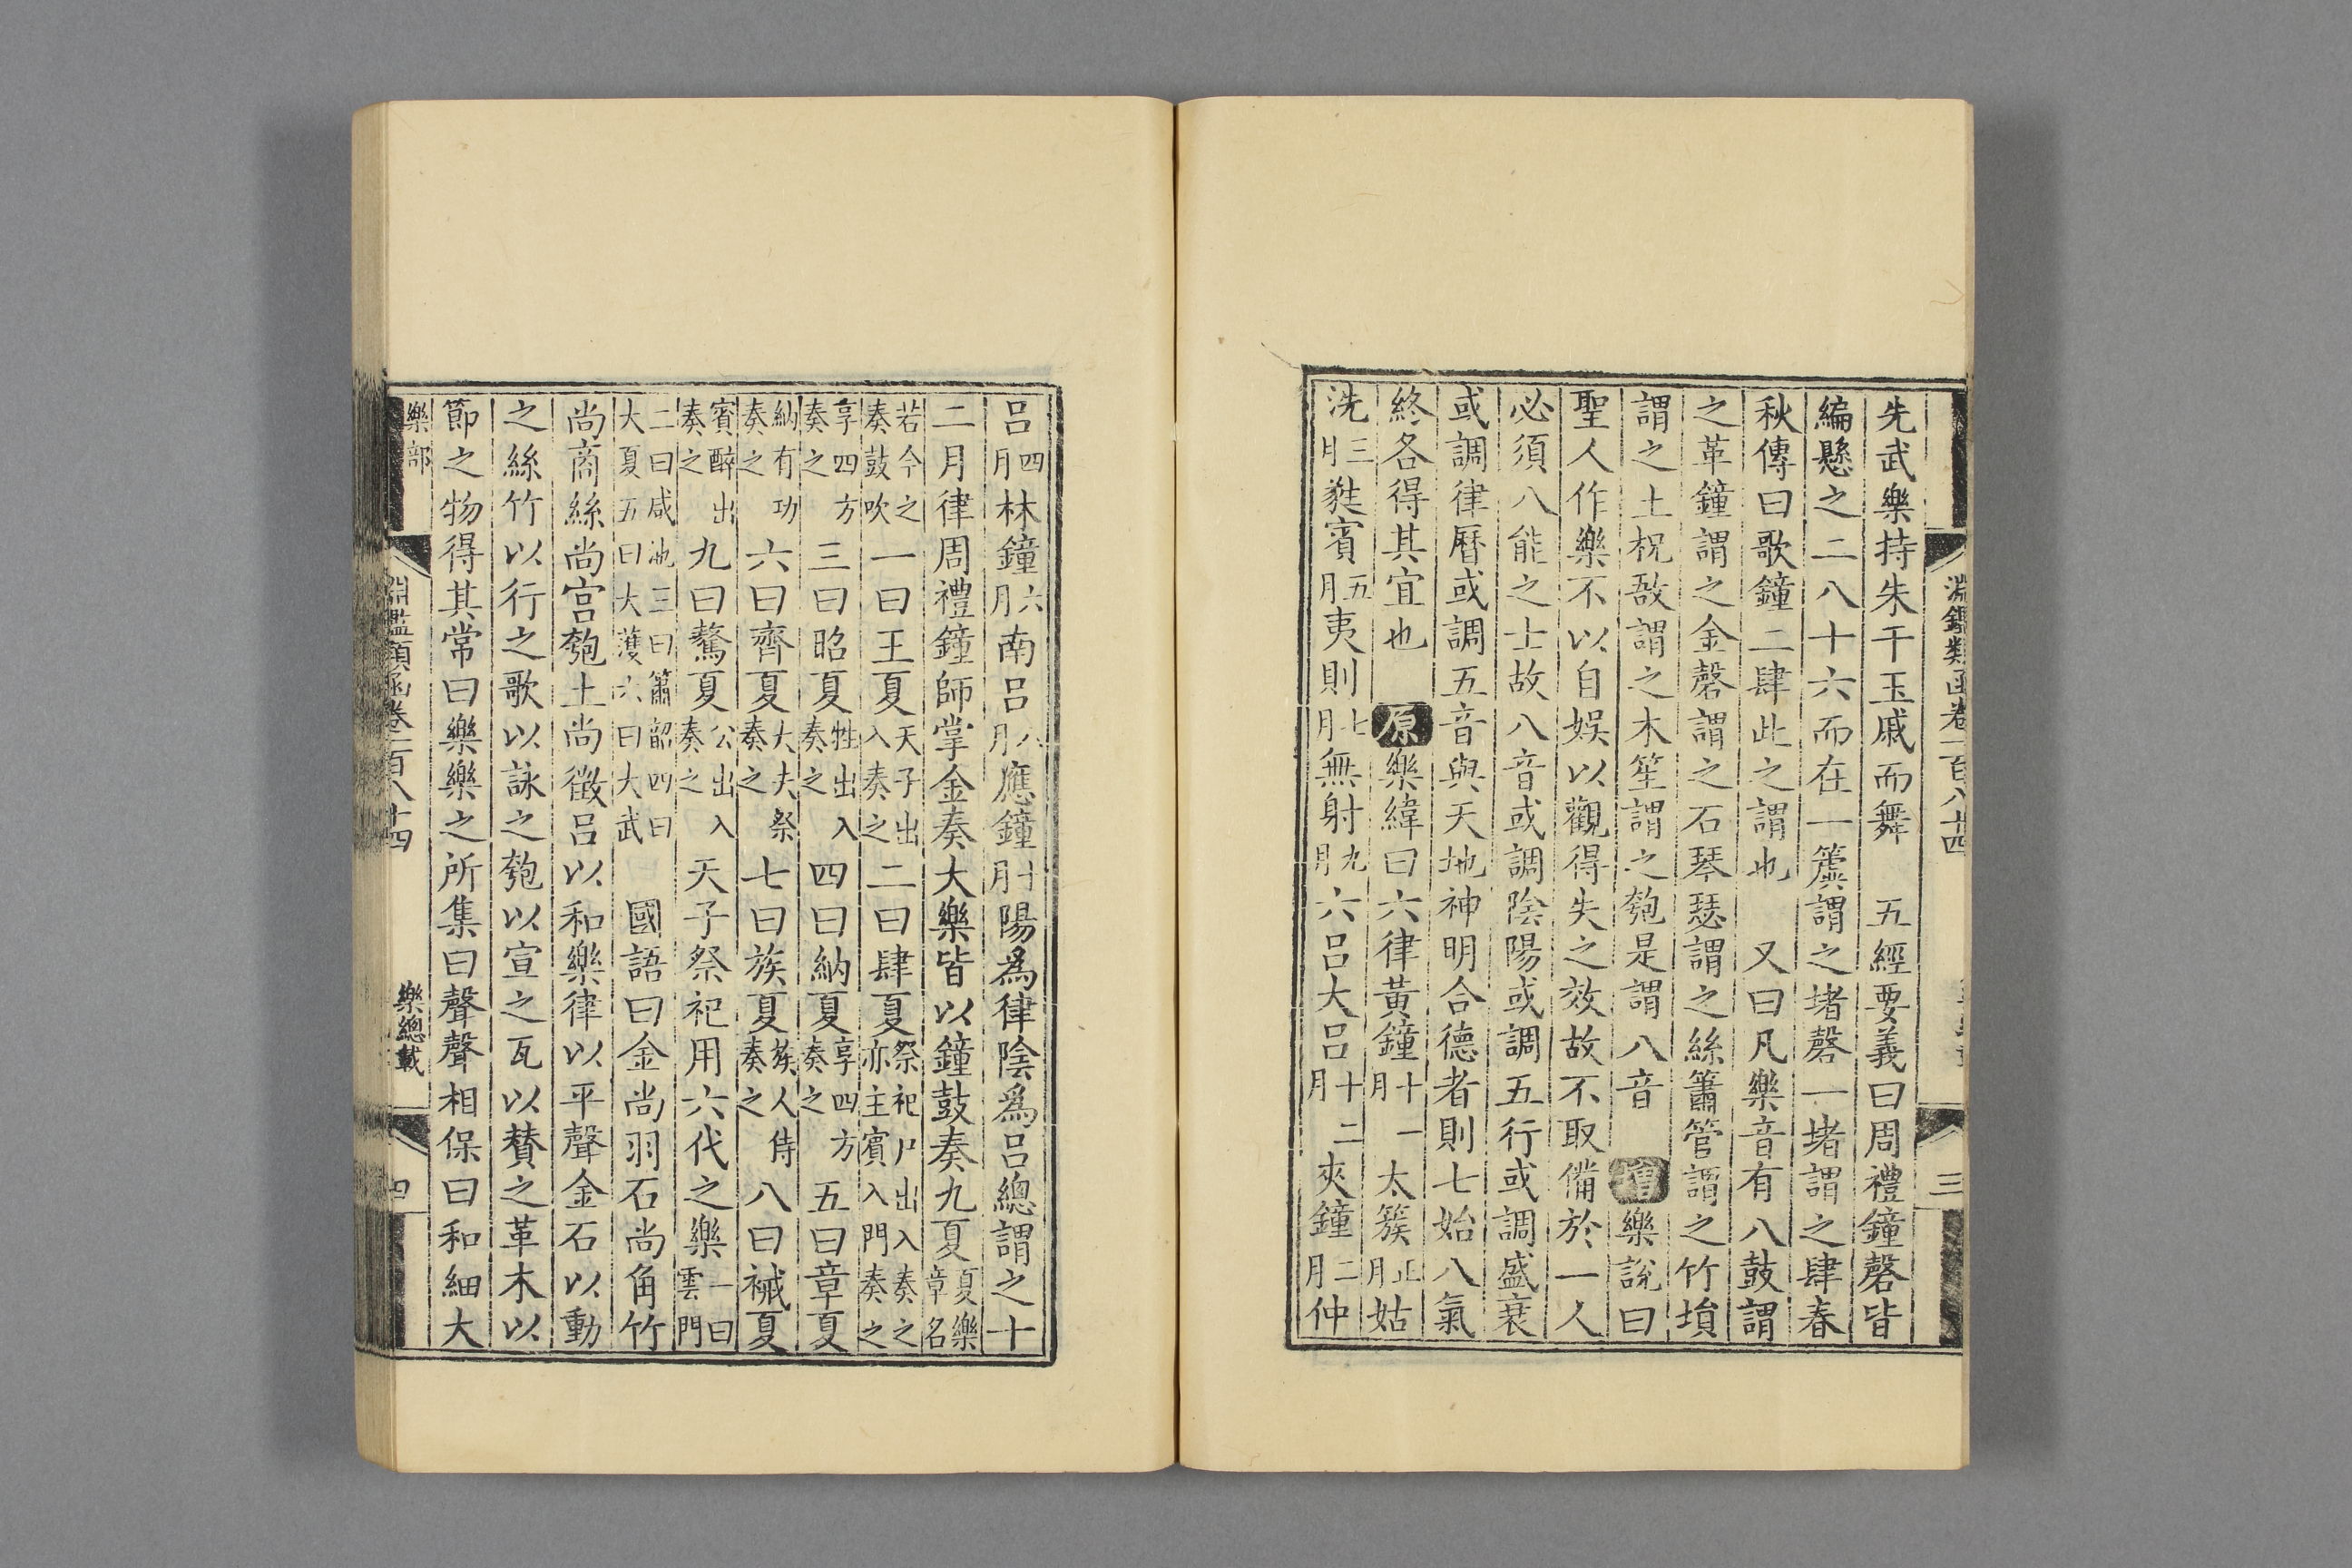 淵鑑類函卷一百八十四
三
先武樂持朱干玉戚而舞 五經要義曰周禮鐘磬皆
編懸之二八十六而在一簴謂之堵磬一堵謂之肆春
秋傳曰歌鐘二肆此之謂也 又曰凡樂音有八鼓謂
之革鐘謂之金磬謂之石琴瑟謂之絲簫管謂之竹塤
謂之土柷敔謂之木笙謂之匏是謂八音 增樂說曰
聖人作樂不以自娛以觀得失之效故不取備於一人
必須八能之士故八音或調陰陽或調五行或調盛衰
或調律曆或調五音與天地神明合德者則七始八氣
終各得其宜也 原樂緯曰六律黃鐘十一月太簇正月姑
洗三月蕤賓五月夷則七月無射九月六呂大呂十二月夾鐘二月仲
呂四月林鐘六月南呂八月應鐘十月陽爲律陰爲呂總謂之十
二月律周禮鐘師掌金奏大樂皆以鐘鼓奏九夏夏樂章名
若今之奏鼓吹一曰王夏天子出入奏之二曰肆夏祭祀尸出入奏之亦主賓入門奏之
享四方奏之三曰昭夏牲出入奏之四曰納夏享四方奏之五曰章夏
納有功奏之六曰齊夏大夫祭奏之七曰族夏族人侍奏之八曰祴夏
賓醉出奏之九曰驁夏公出入奏之天子祭祀用六代之樂一曰雲門
二曰咸池三曰簫韶四曰大夏五曰大濩六曰大武 國語曰金尚羽石尚角竹
尚商絲尚宮匏土尚徵呂以和樂律以平聲金石以動
之絲竹以行之歌以詠之匏以宣之瓦以贊之革木以
節之物得其常曰樂樂之所集曰聲聲相保曰和細大
樂部
淵鑑類函卷一百八十四
樂總載
四